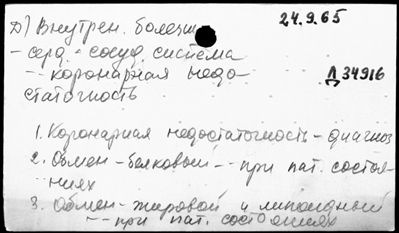 Д) Внутрен. болезни 24.9.65
- серд.-сосуд. система
-"- коронарная недо- Д 34916
статочность
1. Коронарная недостаточность - диагноз
2. Обмен - белковый -"- при пат. состоя-
ниях
3. Обмен - жировой и липоидный
-"- при пат. состояниях